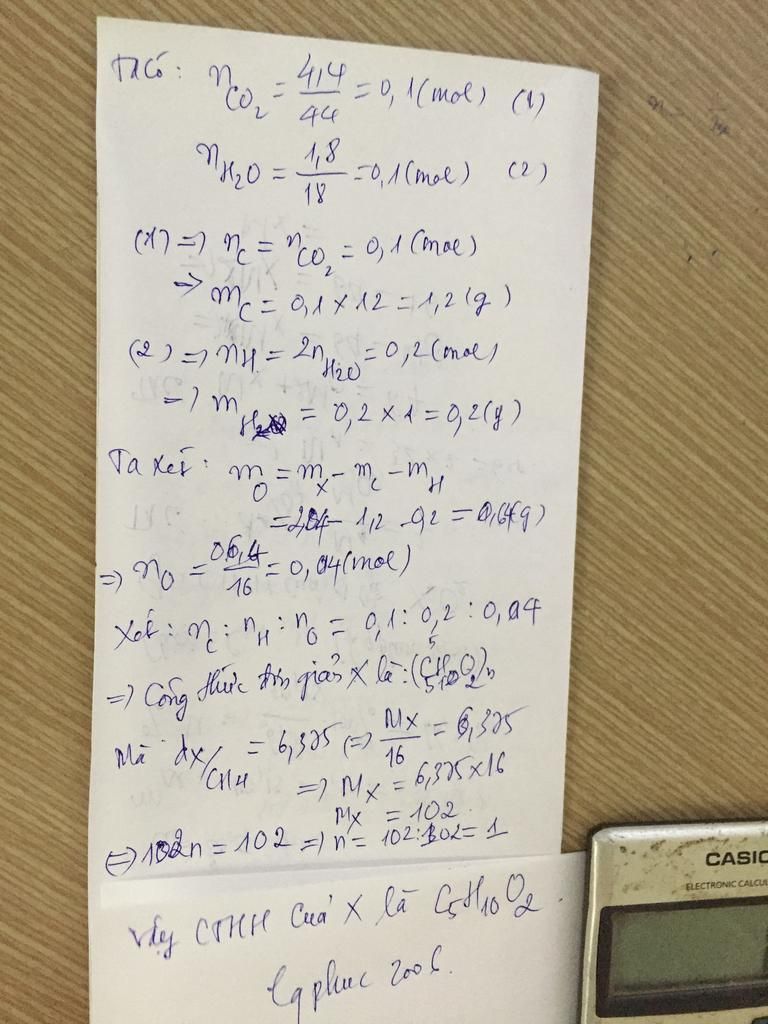 Ta có: nCO₂ = 4,4/44 = 0,1 (mol) (1)
nH₂O = 1,8/18 = 0,1 (mol) (2)
(1) => nC = nCO₂ = 0,1 (mol)
=> mC = 0,1 x 12 = 1,2 (g)
(2) => nH = 2nH₂O = 0,2 (mol)
=> mH = 0,2 x 1 = 0,2 (g)
Ta xét: mO = mX - mC - mH
= 2,04 - 1,2 - 0,2 = 0,64 (g)
=> nO = 0,64/16 = 0,04 (mol)
Xét: nC : nH : nO = 0,1 : 0,2 : 0,04
=> Công thức đơn giản X là: (C₅H₁₀O₂)n
Mà dX/CH4 = 6,375 (=> MX/16 = 6,375
=> MX = 6,375 x 16
MX = 102
(=> 102n = 102 => n = 102:102 = 1
Vậy CTHH của X là C₅H₁₀O₂.
2006.
CASIO
ELECTRONIC CALCUL